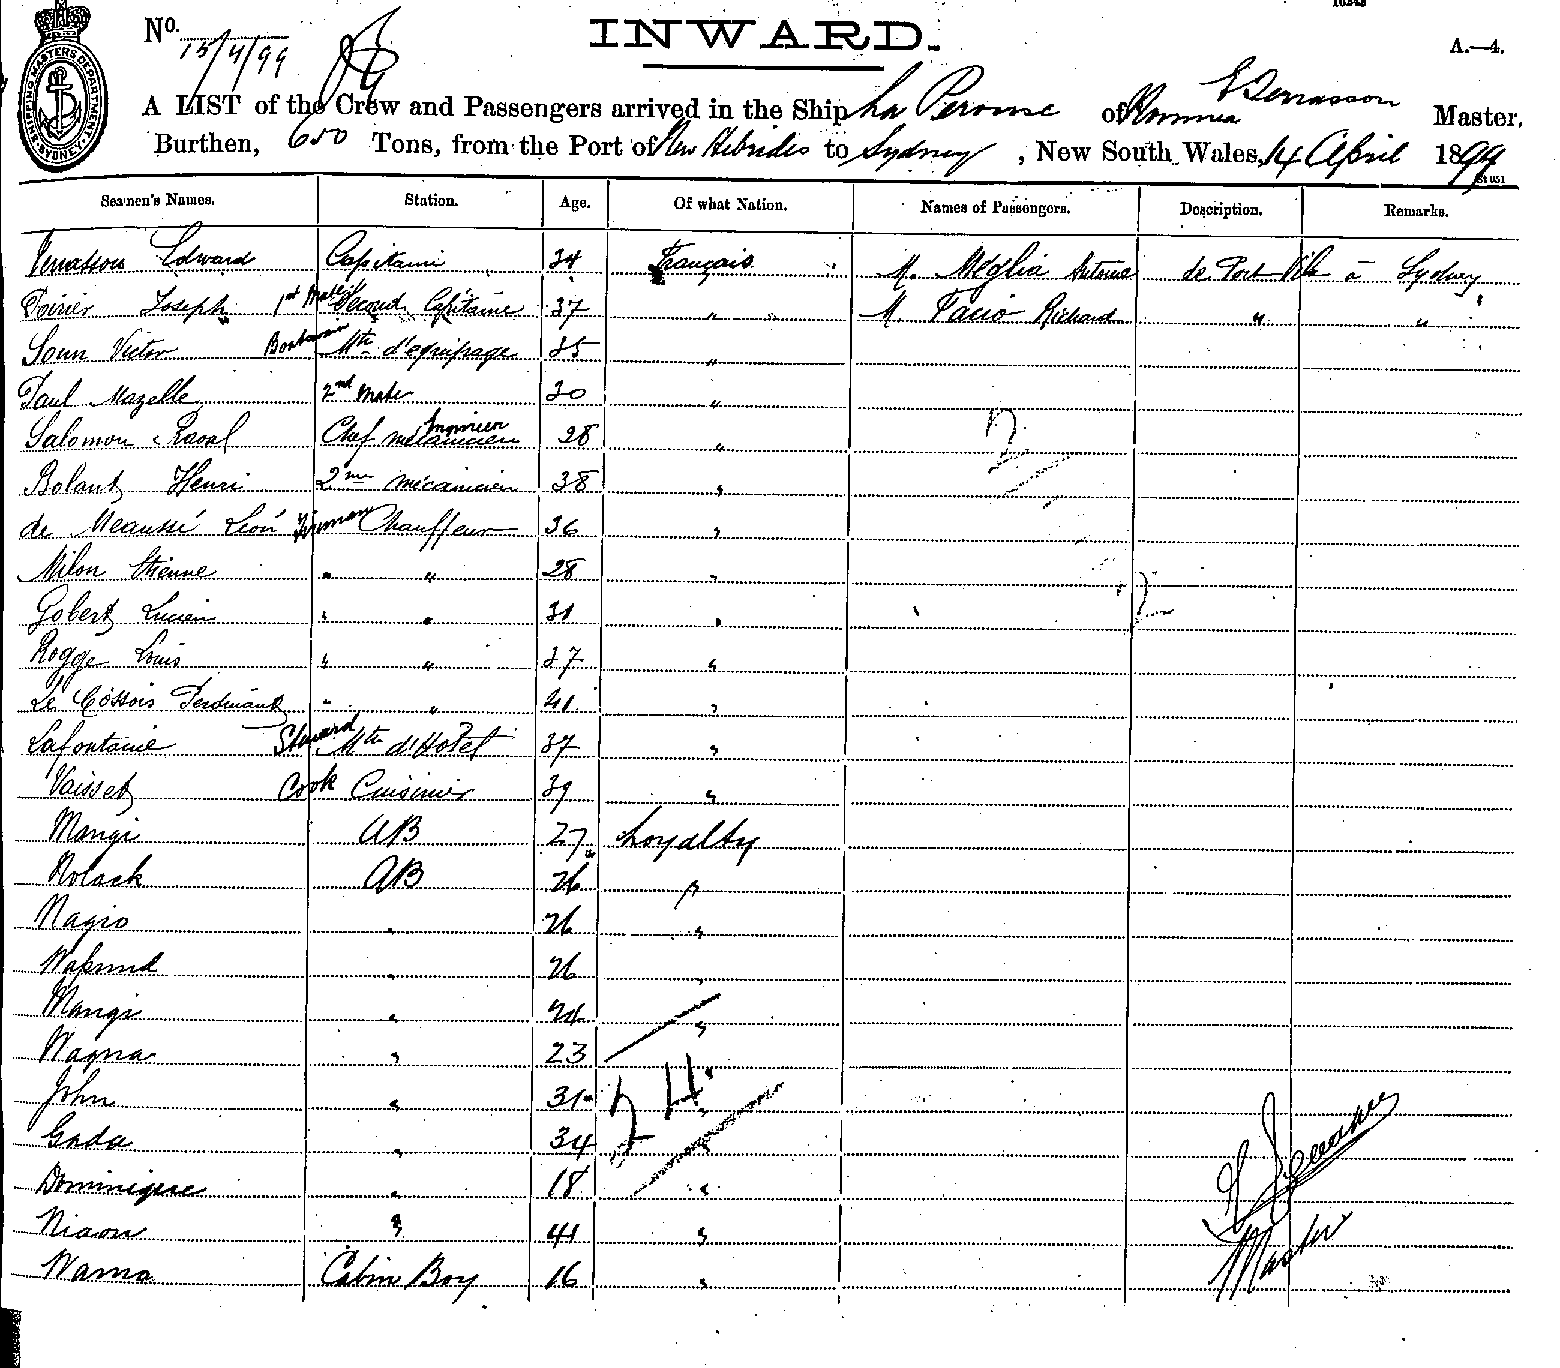 No. 15/4/99
INWARD.
A.—4.
A LIST of the Crew and Passengers arrived in the Ship La Perouse of Noumea E Terrasson Master,
Burthen, 650 Tons, from the Port of New Hebrides to Sydney, New South Wales, 14 April 1899
Seamen's Names. Station. Age. Of what Nation. Names of Passengers. Description. Remarks.
Terrasson Edward Capitaine 34 Français M. Méglia Antoine de Port Vila à Sydney
Poirier Joseph 1st Mate Second Capitaine 37 " M. Facio Richard " "
Soun Victor Boatswain Mtre d'equipage 35 "
Paul Mazelle 2nd Mate 30 "
Salomon Raoul Chef mécanicien Engineer 28 "
Bolant Henri 2me mécanicien 38 "
de Meaussé Léon Fireman Chauffeur 36 "
Milon Etienne " " 28 "
Gobert Lucien " " 31 "
Rogge Louis " " 37 "
Le Cossois Ferdinand " " 41 "
Lafontaine Steward Mtre d'Hotel 37 "
Vaisset Cook Cuisinier 39 "
Mangi AB 27 Loyalty
Nolack AB 26 "
Nagio " 26 "
" 26 "
Mangi " 24 "
Wagna " 23 "
John " 31 "
Gada " 34 "
Dominique " 18 "
Niaon " 41 "
Wama Cabin Boy 16 "
2
24
Master
SHIPPING MASTERS DEPARTMENT SYDNEY